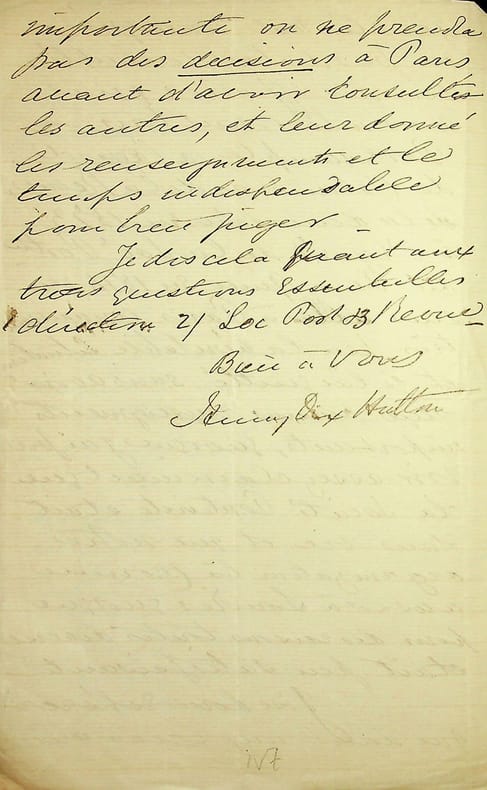 importante on ne prendra
pas des decisions à Paris
avant d'avoir consultés
les autres, et leur donné
les renseignements et le
temps indispensable
pour bien juger —
Je dis cela quant aux
trois questions Essentielles
1 direction 2/ Soc Post 3 Revue —
Bien à Vous
Henry Dix Hutton